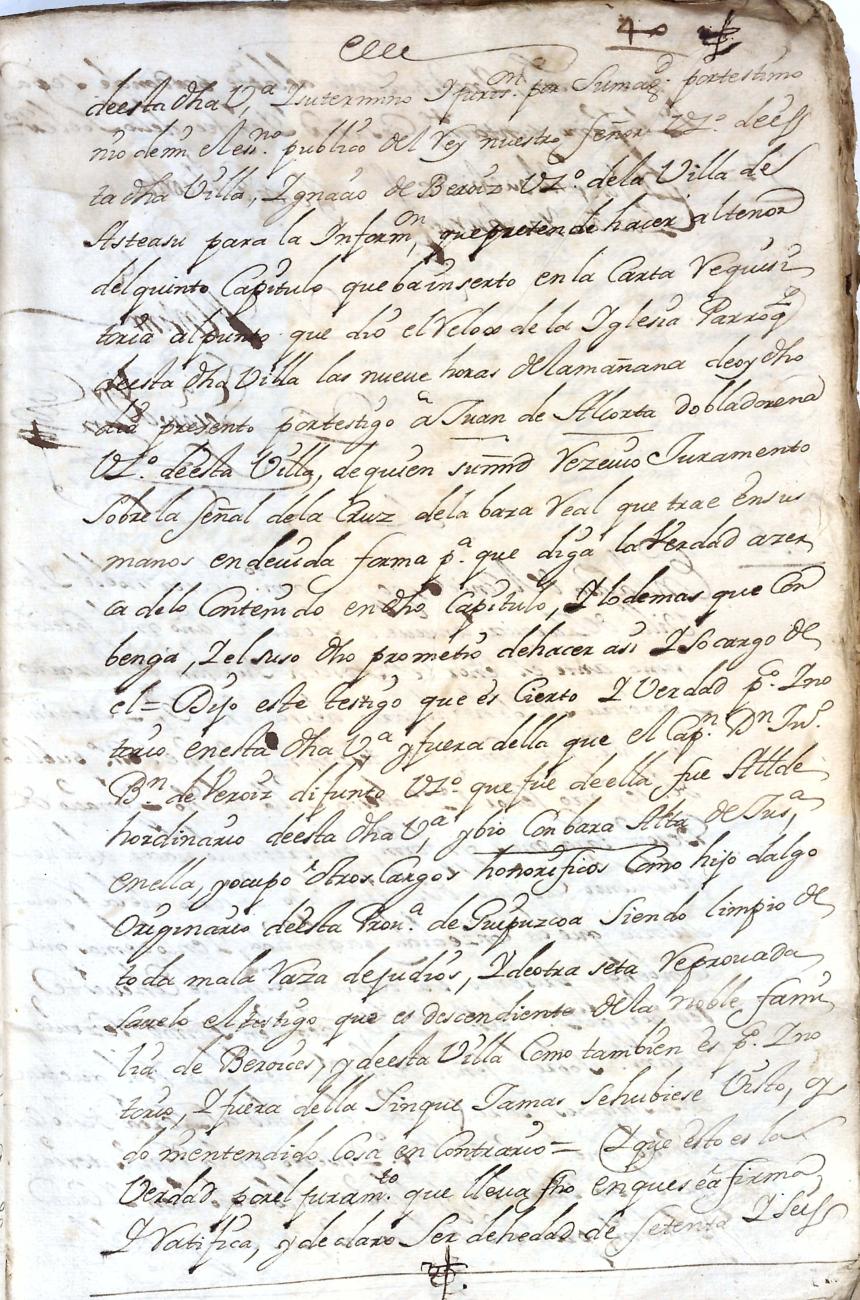 40
de esta dha V.ª Y su termino Y juris.on por Su Mag.d por testimo
nio de mi el ess.no publico del Rey nuestro Señor VZ.o de es
ta dha Villa, Ygnacio de Beroiz VZ.o de la Villa de
Asteasu para la Inform.on que pretende hacer al tenor
del quinto Capitulo que ba inserto en la Carta Requisi
toria al punto que dió el Relox de la Yglesia Parroq.l
de esta dha Villa las nueve horas de la mañana de oy dho
dia presento por testigo a Juan de Alcorta
VZ.o de esta Villa, de quien su mrd Rezeuio Juramento
Sobre la señal de la Cruz de la bara Real que trae en sus
manos en deuida forma p.ª que diga la Verdad azer
ca de lo Contenido en dho Capitulo, Y lo demas que Con
benga, Y el suso dho prometió de hacer asi Y so cargo de
el = Dijo este testigo que es Cierto Y Verdad p.co Y no
torio en esta dha V.ª y fuera della que el Cap.n Dn Ju.o
B.n de Veroiz difunto VZ.o que fue de ella fue Allde
hordinario de esta dha V.ª y bio Con bara Alta de Jus.ª
en ella, y ocupo otros Cargos honorificos Como hijo dalgo
Originario de esta Prou.ª de Guipuzcoa Siendo limpio de
toda mala Raza de judios, Y de otra seta Reprouada
Sauelo el testigo que es descendiente de la noble fami
lia de Beroices, y de esta Villa Como tambien es p.co Y no
torio, Y fuera della Sin que Jamas se hubiese Visto, oy
do ni entendido Cosa en Contrario = Y que esto es la
Verdad por el juram.to que lleua fho en que se afirma
Y Ratifica, y declaro Ser de hedad de setenta Y Seis